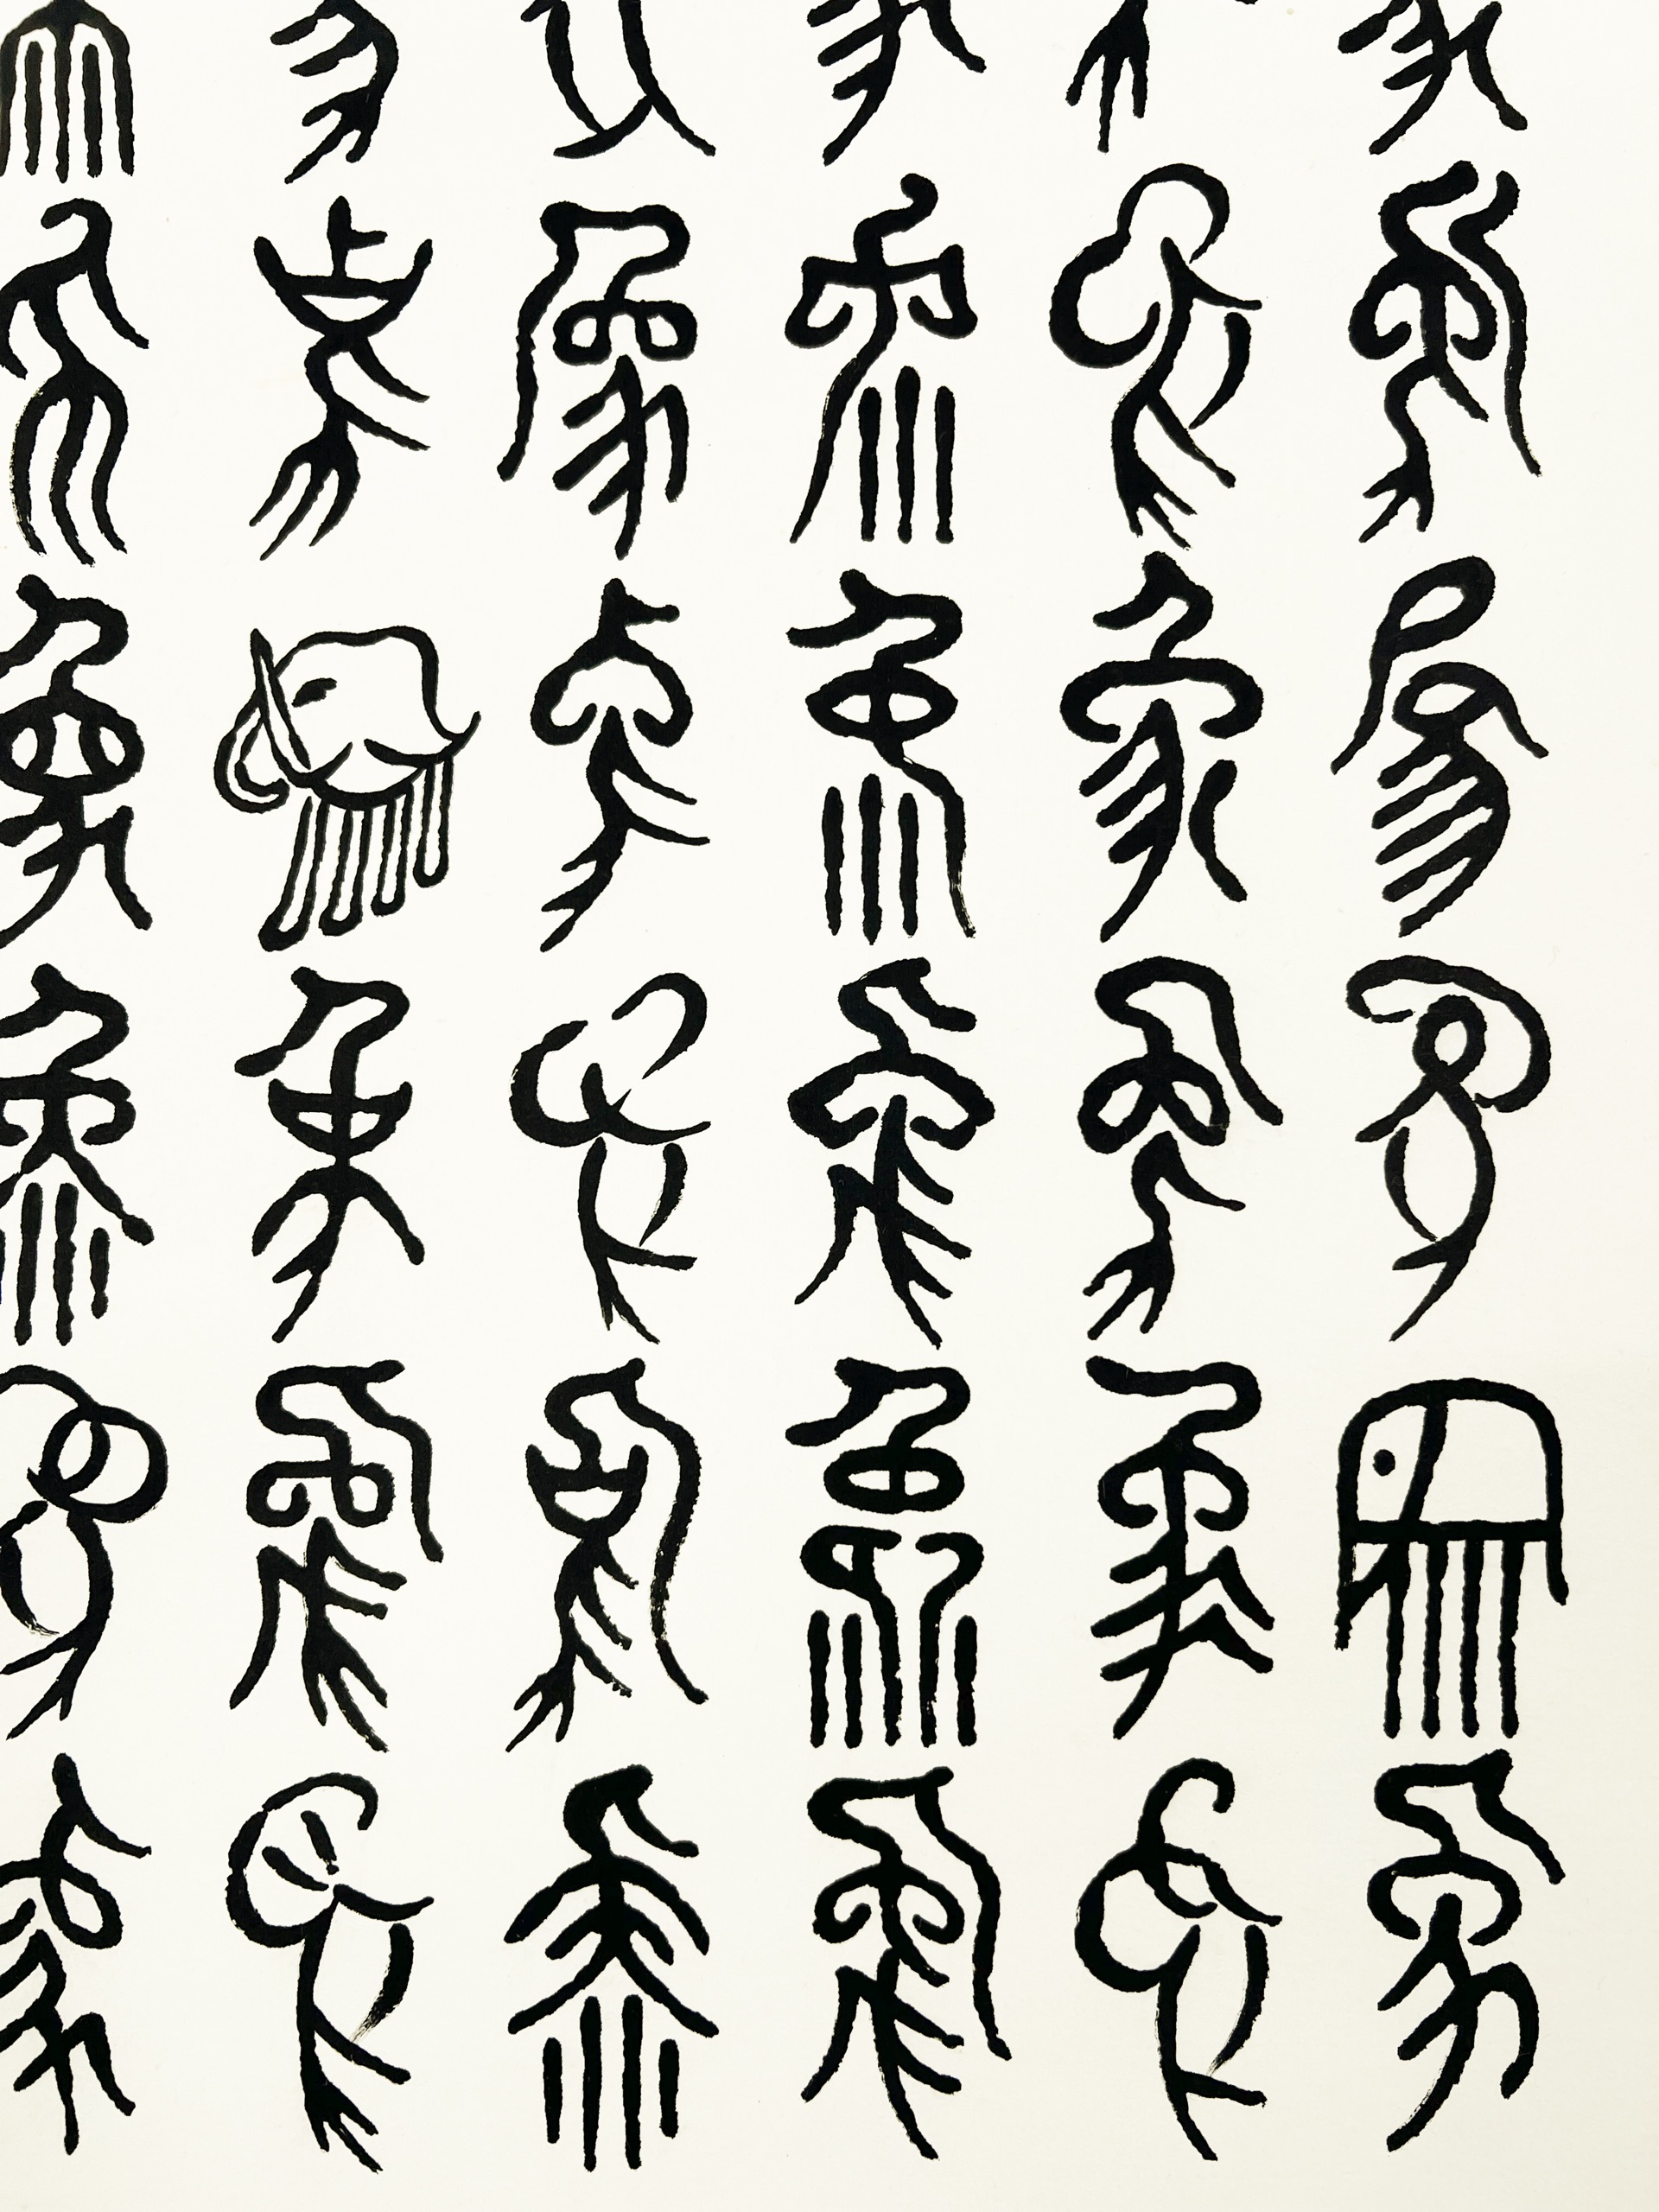 象象象象象
象象象象象
象象象象象
象象象象象
象象象象象
象象象象象